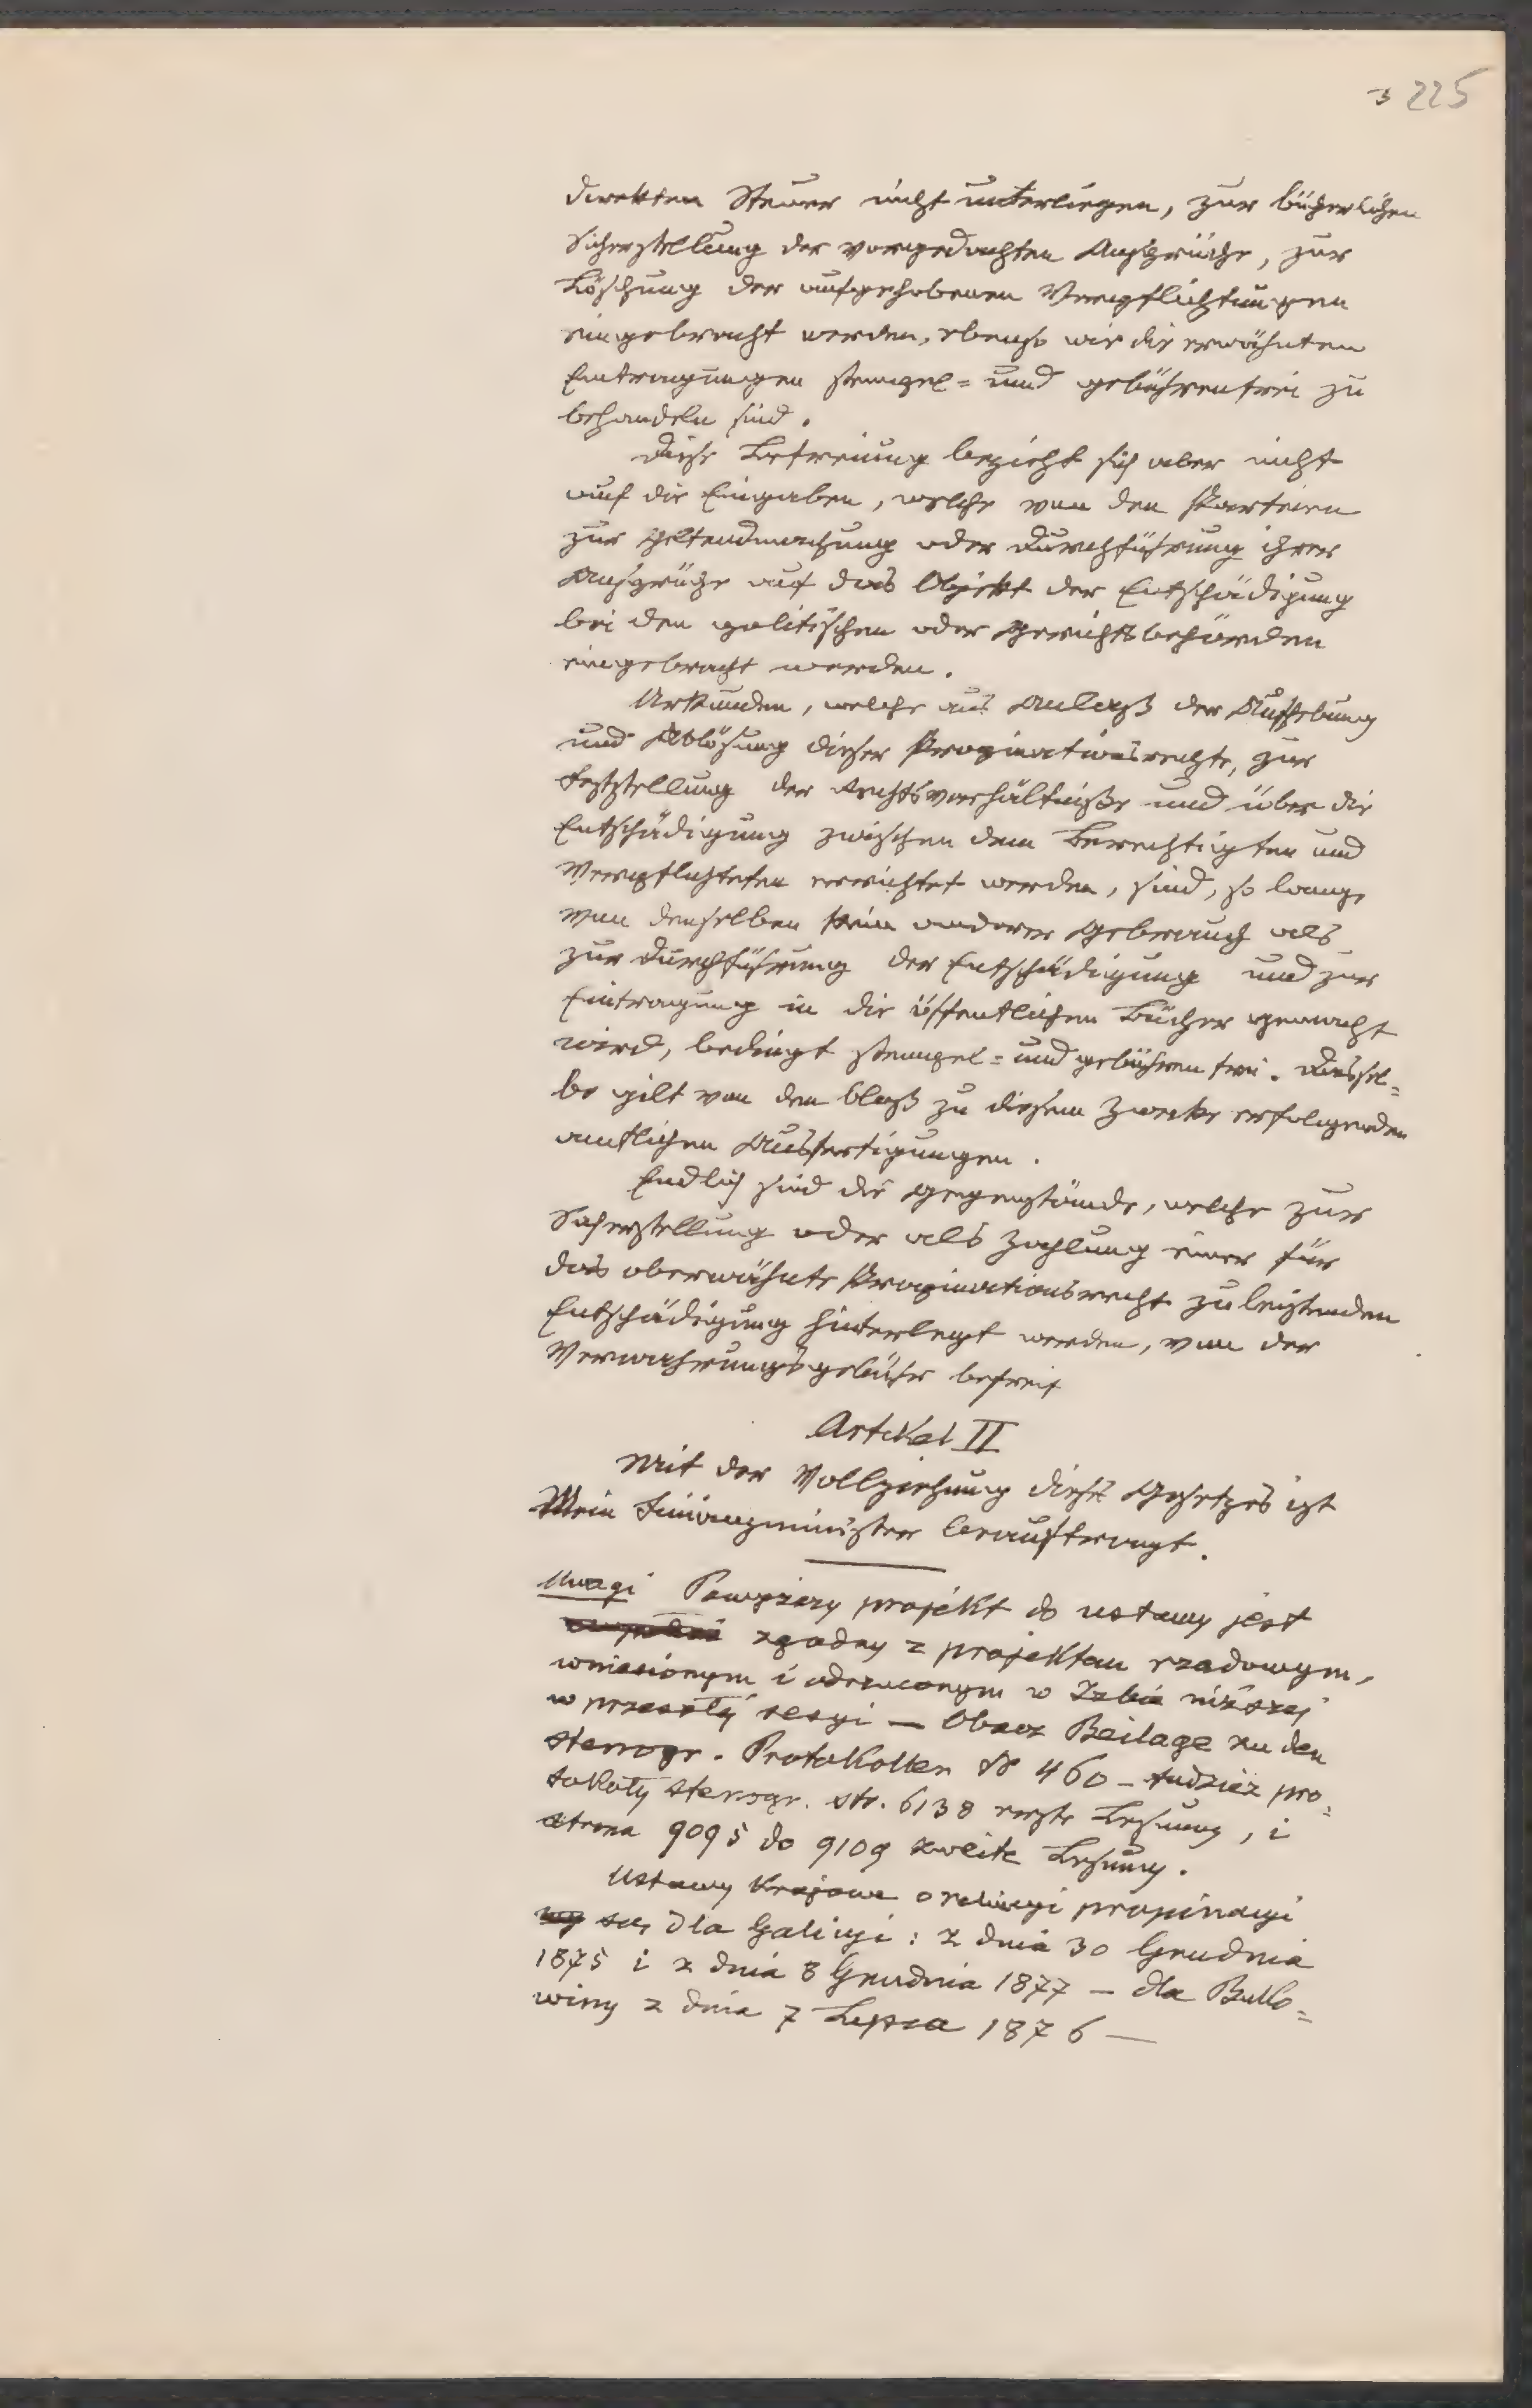 3 225
direkten Steuer nicht unterliegen, zur bücherlichen
Sicherstellung der vorgedachten Ansprüche, zur
Löschung der aufgehobenen Verpflichtungen
eingebracht werden, ebenso wie die erwähnten
Eintragungen stempel= und gebührenfrei zu
behandeln sind.
Diese Befreiung bezieht sich aber nicht
auf die Eingaben, welche von den Parteien
zur Geltendmachung oder Durchführung ihrer
Ansprüche auf das Objekt der Entschädigung
bei den politischen oder Gerichtsbehörden
eingebracht werden.
Urkunden, welche aus Anlaß der Aufhebung
und Ablösung dieser Propinationsrechte, zur
Feststellung der Rechtsverhältniße und über die
Entschädigung zwischen dem Berechtigten und
Verpflichteten errichtet werden, sind, so lange
von denselben kein anderer Gebrauch als
zur Durchführung der Entschädigung und zur
Eintragung in die öffentlichen Bücher gemacht
wird, bedingt stempel= und gebührenfrei. Dassel=
be gilt von den bloß zu diesem Zwecke erfolgenden
amtlichen Ausfertigungen.
Endlich sind die Gegenstände, welche zur
Sicherstellung oder als Zahlung einer für
das oberwähnte Propinationsrecht zu leistenden
Entschädigung hinterlegt werden, von der
Verwahrungsgebühr befreit
Artikel II
Mit der Vollziehung dieses Gesetzes ist
Mein Finanzminister beauftragt.
Uwagi Powyższy projekt do ustawy jest
zgodny z projektem rządowym,
wniesionym i odrzuconym w Izbie niższej
w przeszłéj sesyi — Obacz Beilage zu den
stenogr. Protokollen № 460 — tudzież pro=
tokoły stenogr. str. 6138 erste Lesung, i
strona 9095 do 9109 zweite Lesung.
Ustawy krajowe o propinacyi
są dla Galicyi: z dnia 30 Grudnia
1875 i z dnia 8 Grudnia 1877 — dla Buko=
winy z dnia 7 Lipca 1876 —